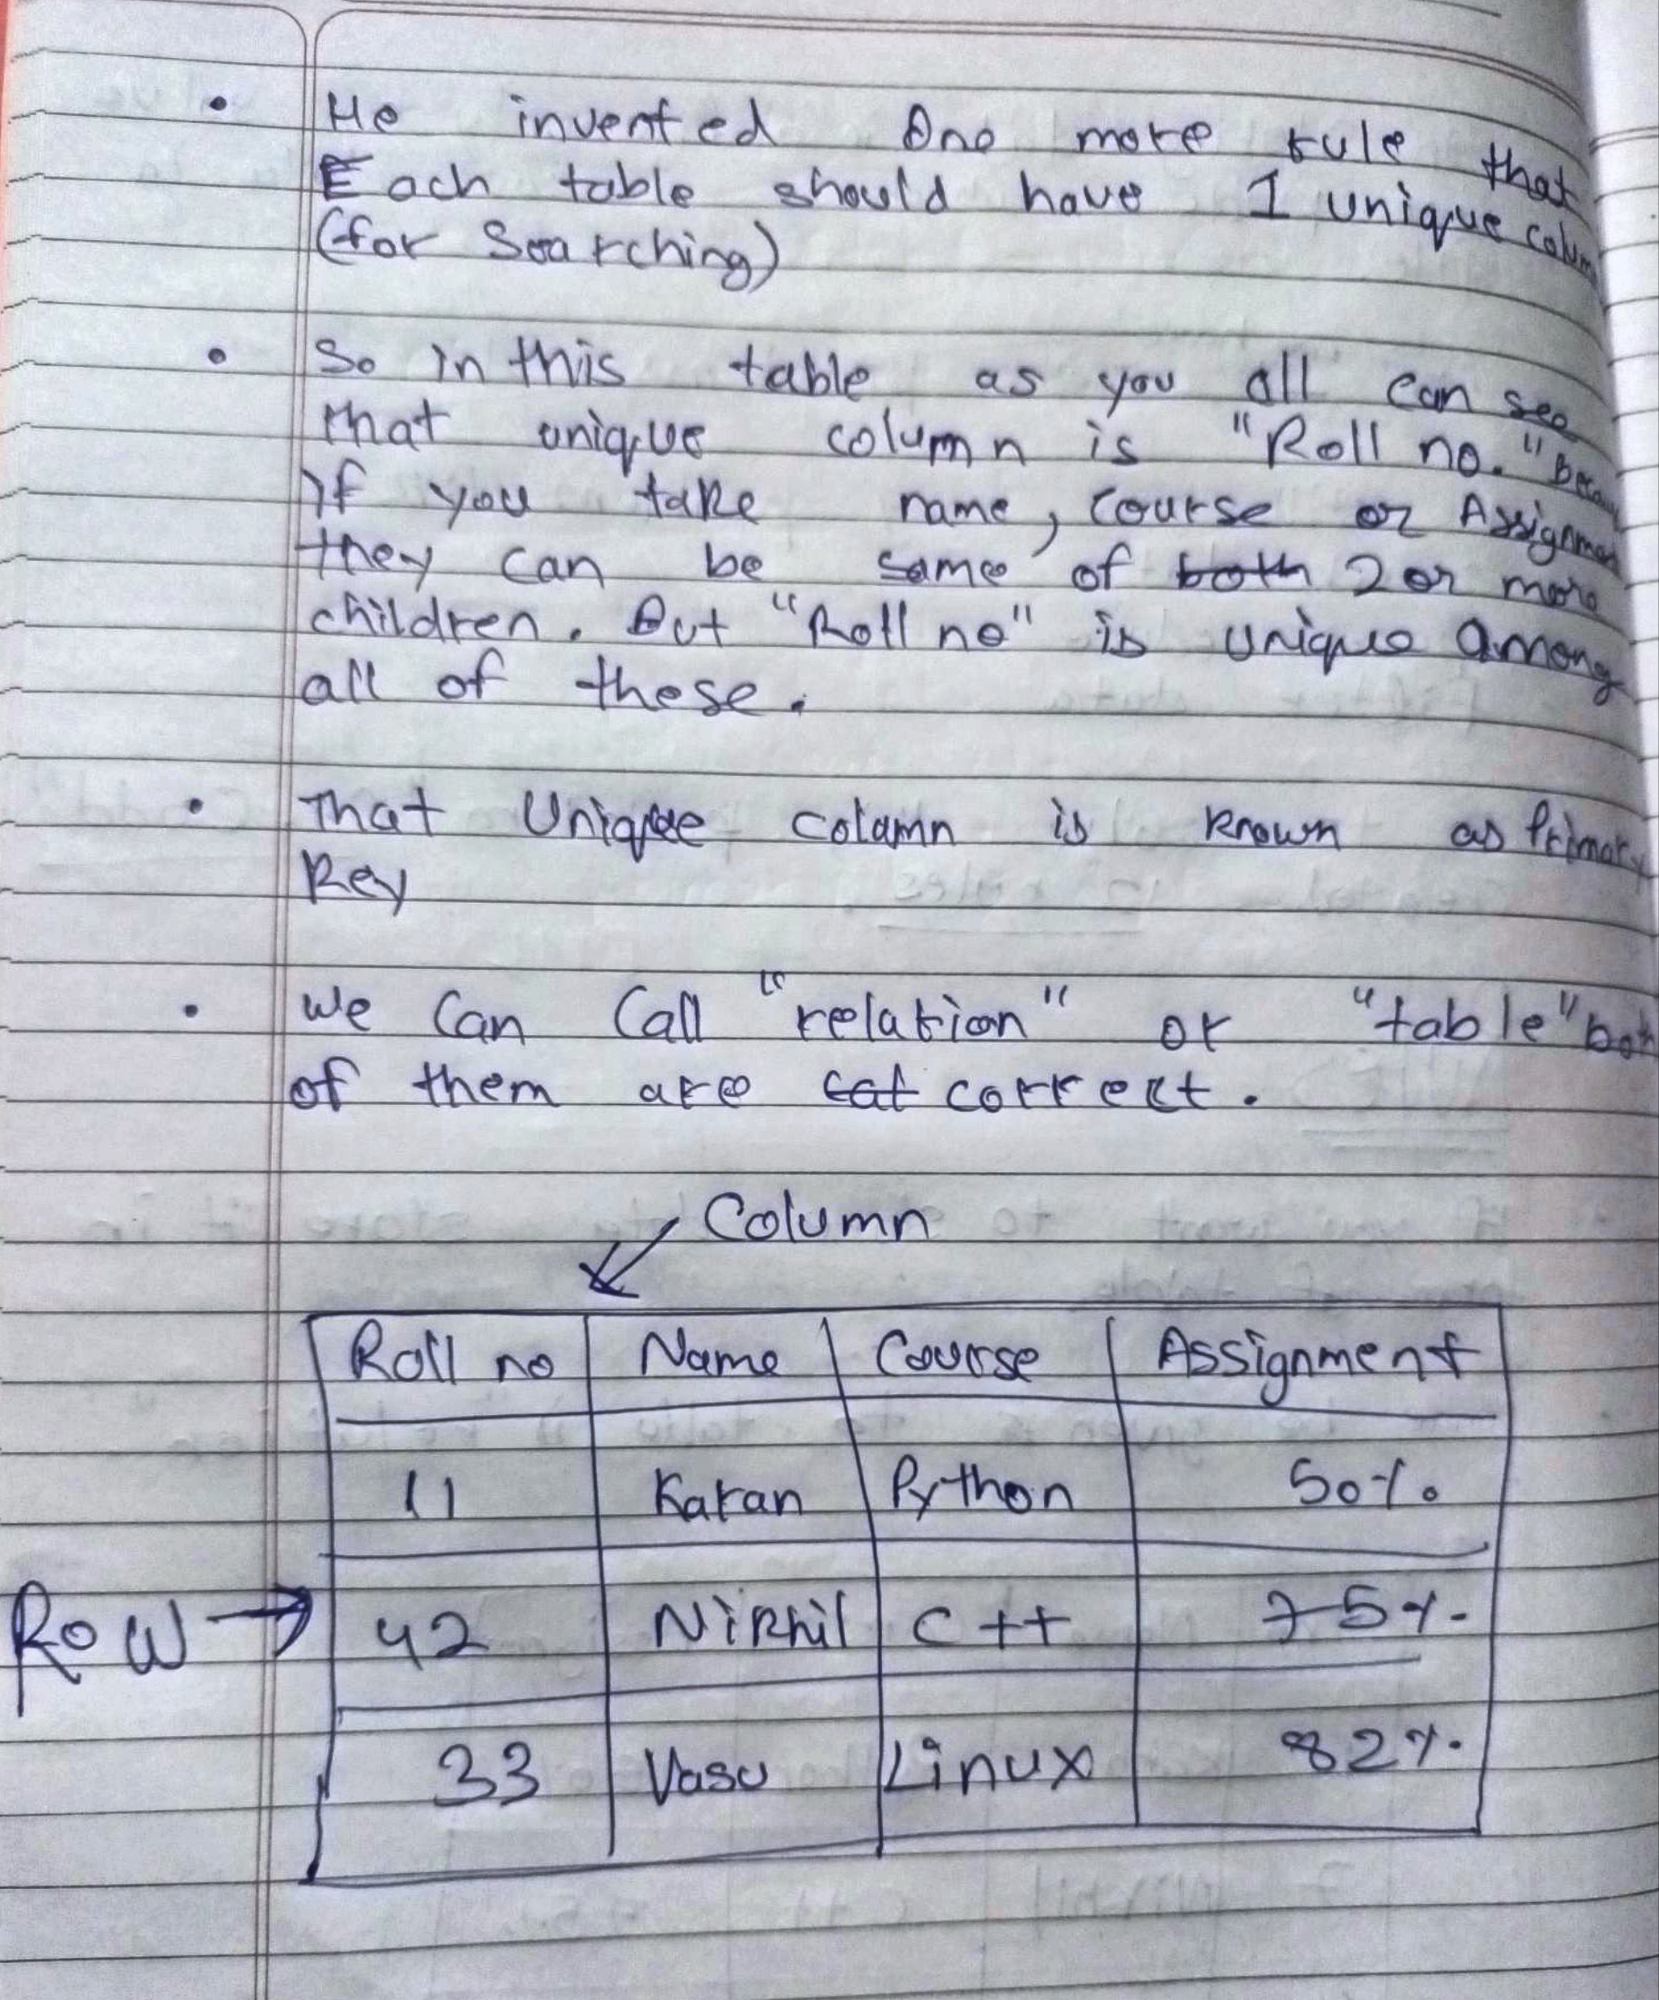 • He invented One more rule that
Each table should have 1 unique colum
(for Searching)
• So in this table as you all can see
that unique column is "Roll no."
If you take name, Course or Assignmen
they can be same of both 2 or more
children. But "Roll no" is unique among
all of these.
• That Unique column is known as Primary
Key
• We Can Call "relation" or "table" both
of them are cat correct.
Column
Roll no Name Course Assignment
11 Karan Python 50%
Row → 42 Nikhil C++ 75%
33 Vasu Linux 82%